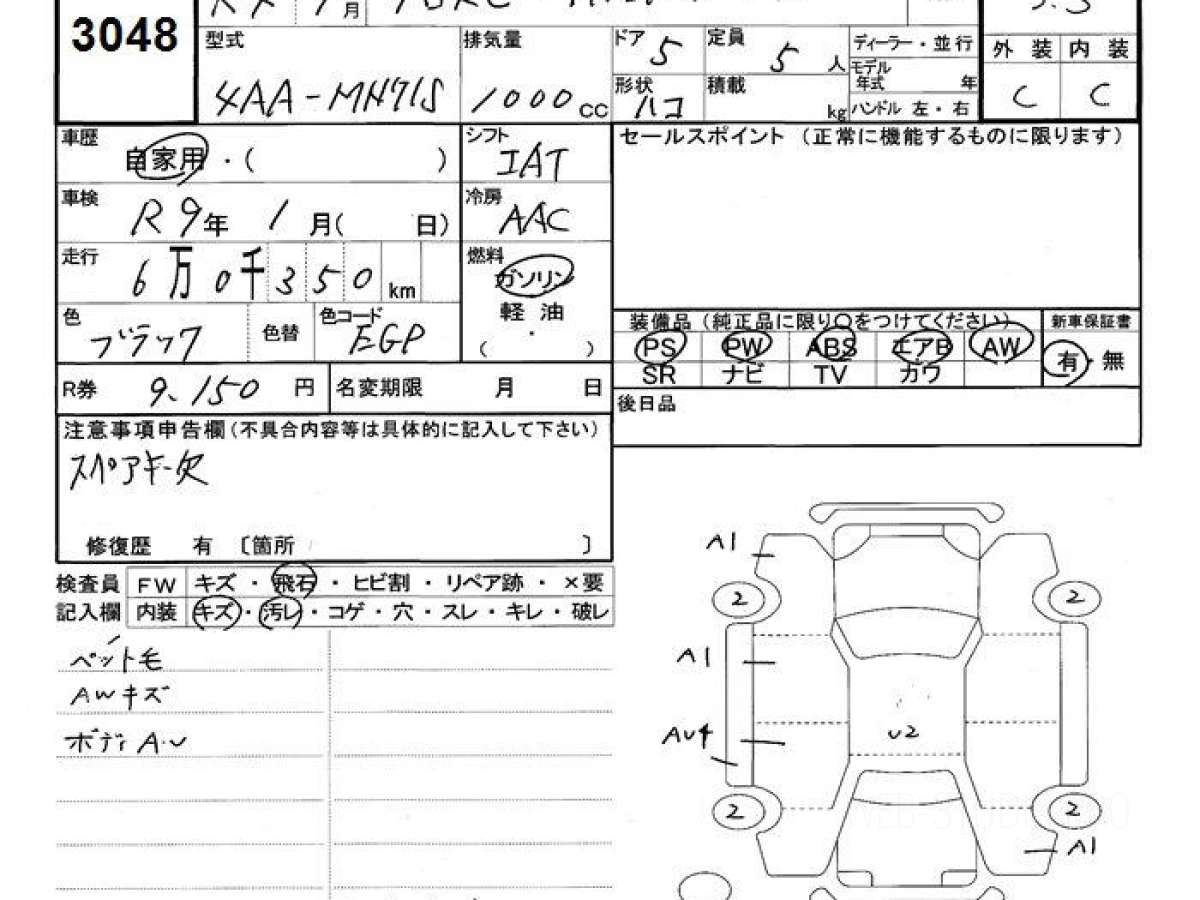 3048
月
型式 4AA-MN71S
排気量 1000cc
ドア 5
定員 5人
形状 ハコ
積載 kg
ディーラー・並行
モデル年式 年
ハンドル 左・右
外装 内装
C C
車歴 自家用・( )
シフト IAT
車検 R9年 1月( 日)
冷房 AAC
走行 6万0千350km
燃料 ガソリン
軽油
( ・ )
色 ブラック
色替
色コード EGP
R券 9.150円
名変期限 月 日
セールスポイント (正常に機能するものに限ります)
装備品 (純正品に限り○をつけてください)
PS PW ABS エアB AW
SR ナビ TV カワ
新車保証書
有・無
後日品
注意事項申告欄(不具合内容等は具体的に記入して下さい)
スペアキー欠
修復歴 有 〔箇所 〕
検査員 FW キズ・飛石・ヒビ割・リペア跡・×要
記入欄 内装 キズ・汚レ・コゲ・穴・スレ・キレ・破レ
ペット毛
AWキズ
ボディA・U
A1
2 2
A1
AU4
U2
2 2
A1